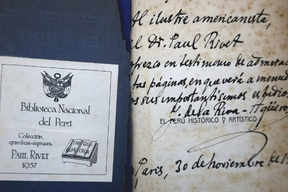 Biblioteca Nacional
del Perú
Colección
quechua-aymara
PAUL RIVET
1957
Al ilustre americanista,
el dr. Paul Rivet
ofrezco en testimonio de admiración
páginas, en que verá a menudo
sus importantísimos
de la Riva-Agüero
EL PERÚ HISTÓRICO Y ARTÍSTICO
París, 30 de noviembre de